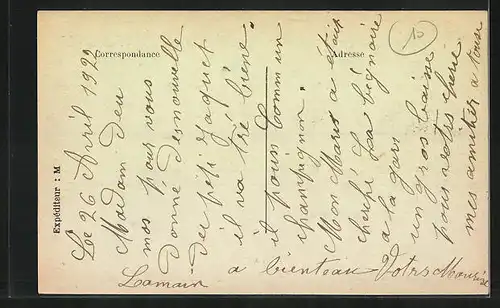 Correspondance
Adresse
Expéditeur : M
10
Le 26 Avril 1922
Madam deu
mos pour vous
donné desnouvelle
deu peti Jaquet
il va tré biene
it pouss Comm un
champignon.
Mon Mari a étais
cherché Laa
a la gars
un gros baisse
pour votre
mes amitier a touse
a bienteau Votre
Lamain